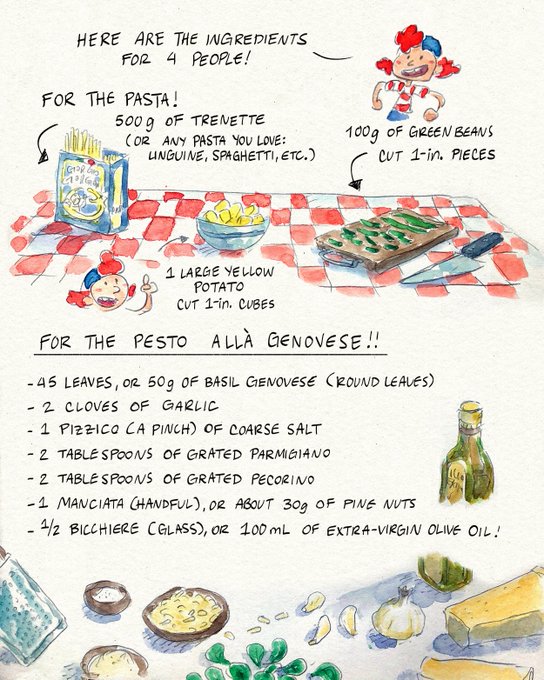 HERE ARE THE INGREDIENTS
FOR 4 PEOPLE!
FOR THE PASTA!
500g OF TRENETTE
(OR ANY PASTA YOU LOVE:
LINGUINE, SPAGHETTI, ETC.)
100g OF GREEN BEANS
CUT 1-in. PIECES
1 LARGE YELLOW
POTATO
CUT 1-in. CUBES
FOR THE PESTO ALLÀ GENOVESE!!
- 45 LEAVES, OR 50g OF BASIL GENOVESE (ROUND LEAVES)
- 2 CLOVES OF GARLIC
- 1 PIZZICO (A PINCH) OF COARSE SALT
- 2 TABLESPOONS OF GRATED PARMIGIANO
- 2 TABLESPOONS OF GRATED PECORINO
- 1 MANCIATA (HANDFUL), OR ABOUT 30g OF PINE NUTS
- 1/2 BICCHIERE (GLASS), OR 100mL OF EXTRA-VIRGIN OLIVE OIL!